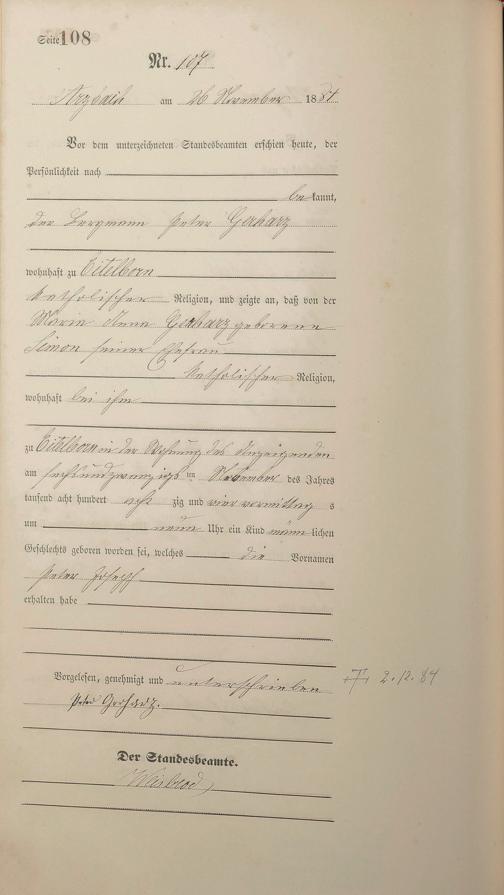 Seite 108
Nr. 107
Arzbach am 26 November 1884
Vor dem unterzeichneten Standesbeamten erschien heute, der
Persönlichkeit nach
bekannt,
der Bergmann Peter Gerharz
wohnhaft zu Eitelborn
katholischer Religion, und zeigte an, daß von der
Maria Anna Gerharz geborene
Simon seiner Ehefrau
katholischer Religion,
wohnhaft bei ihm
zu Eitelborn in der Wohnung des Anzeigenden
am sechsundzwanzigsten November des Jahres
tausend acht hundert achtzig und vier vormittags
um neun Uhr ein Kind männlichen
Geschlechts geboren worden sei, welches die Vornamen
Peter Joseph
erhalten habe
Vorgelesen, genehmigt und unterschrieben
Peter Gerharz.
Der Standesbeamte.
Weisbrod
† 2.12.84